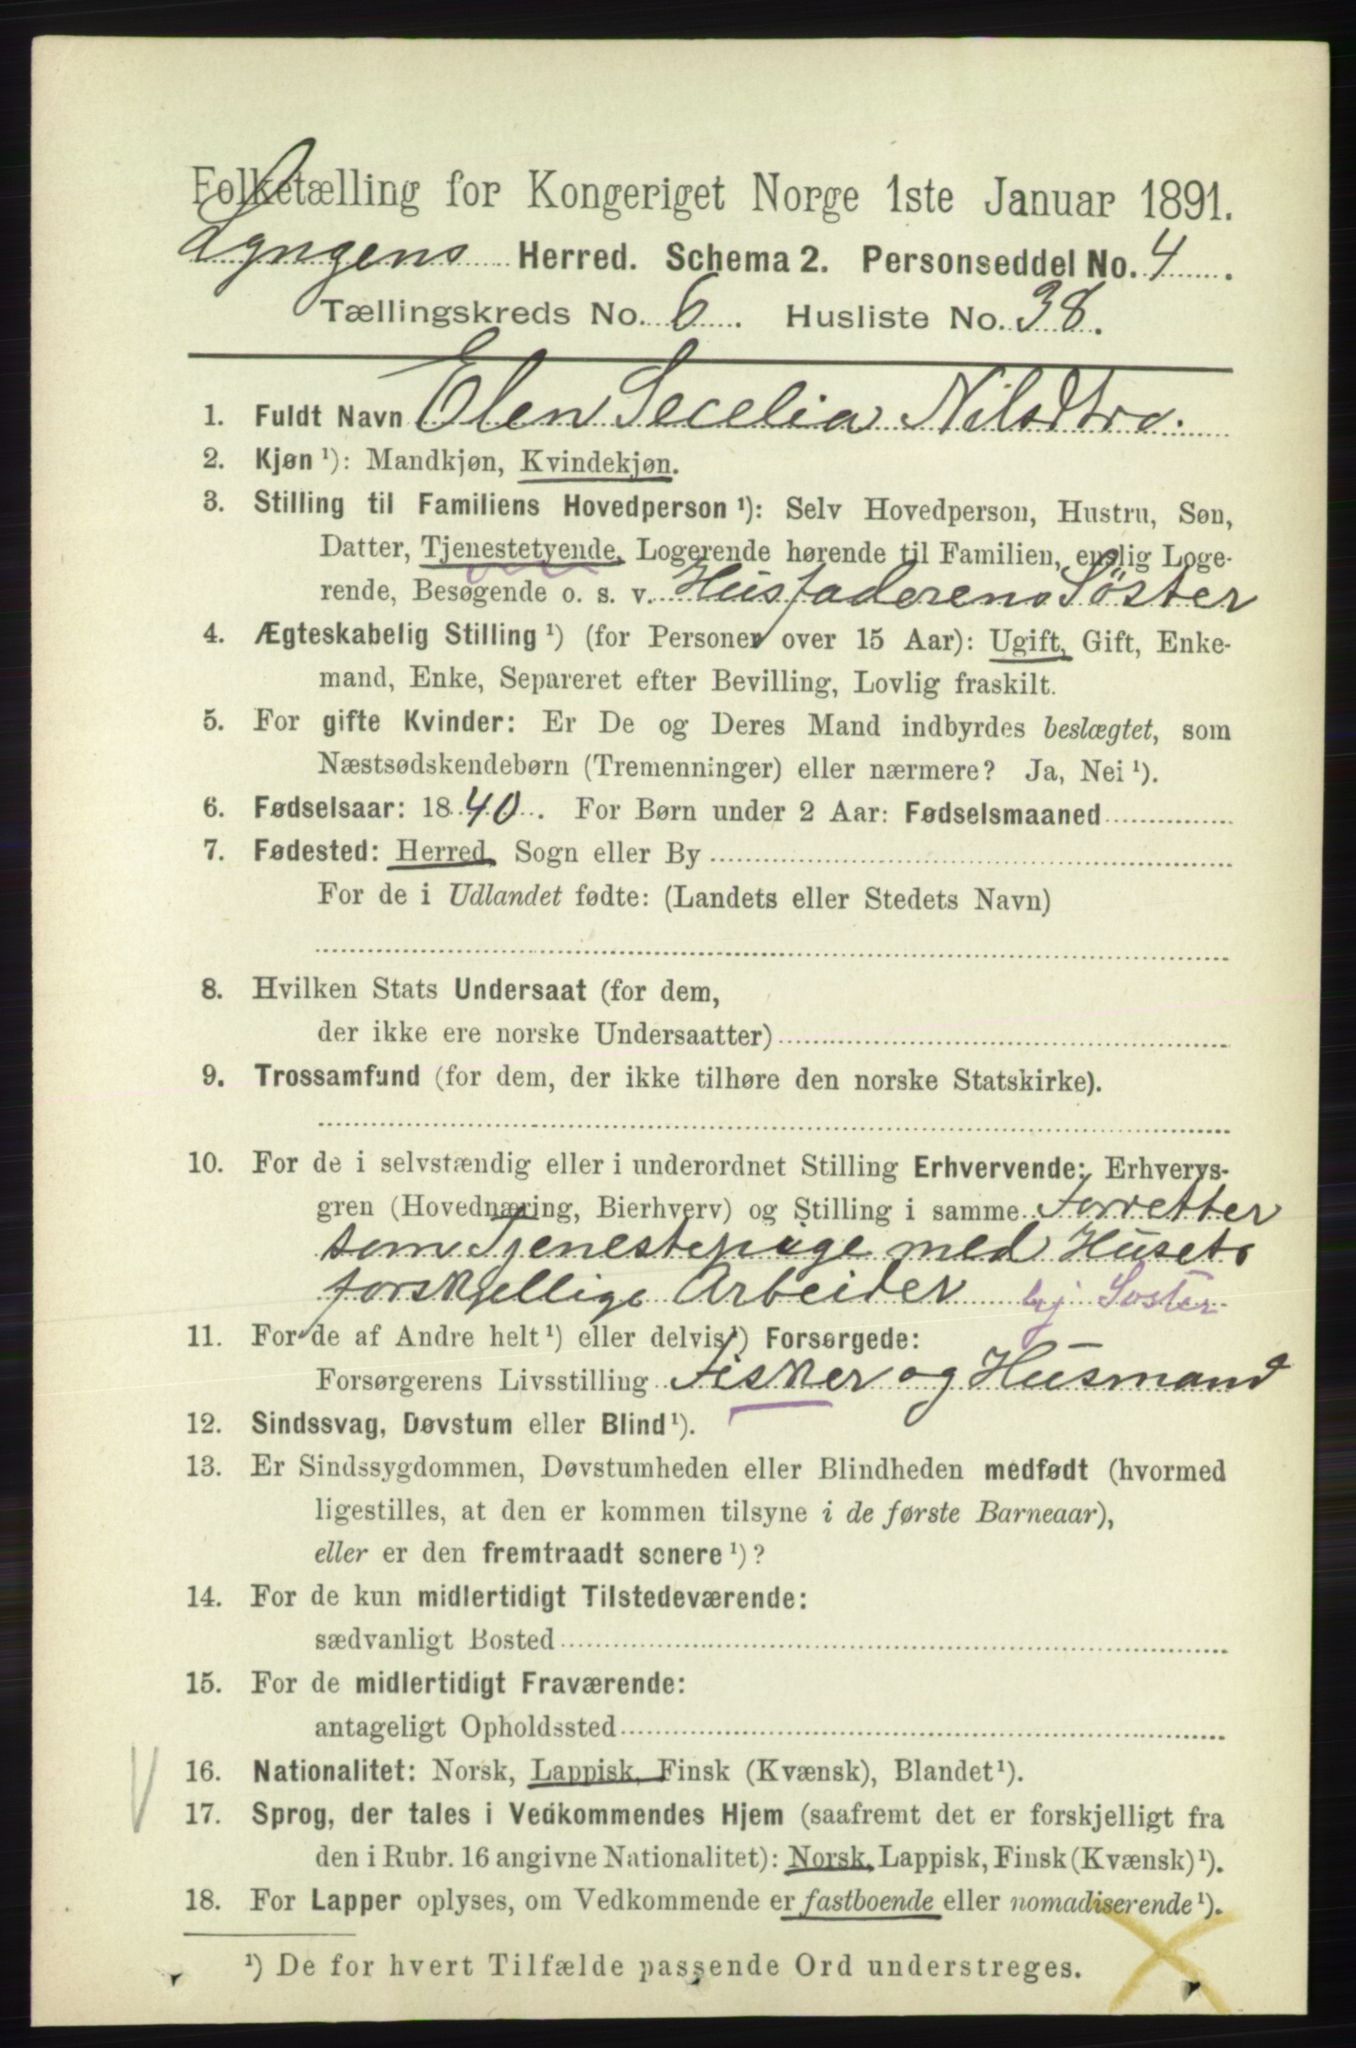 Folketælling for Kongeriget Norge 1ste Januar 1891.
Lyngens Herred. Schema 2. Personseddel No. 4.
Tællingskreds No. 6. Husliste No. 38.
1. Fuldt Navn Elen Secelia Nilsdtro.
2. Kjøn ¹): Mandkjøn, Kvindekjøn.
3. Stilling til Familiens Hovedperson ¹): Selv Hovedperson, Hustru, Søn,
Datter, Tjenestetyende, Logerende hørende til Familien, enslig Loge-
rende, Besøgende o. s. v. Husfaderens Söster
4. Ægteskabelig Stilling ¹) (for Personer over 15 Aar): Ugift, Gift, Enke-
mand, Enke, Separeret efter Bevilling, Lovlig fraskilt.
5. For gifte Kvinder: Er De og Deres Mand indbyrdes beslægtet, som
Næstsødskendebørn (Tremenninger) eller nærmere? Ja, Nei ¹).
6. Fødselsaar: 1840. For Børn under 2 Aar: Fødselsmaaned
7. Fødested: Herred, Sogn eller By
For de i Udlandet fødte: (Landets eller Stedets Navn)
8. Hvilken Stats Undersaat (for dem,
der ikke ere norske Undersaatter)
9. Trossamfund (for dem, der ikke tilhøre den norske Statskirke).
10. For de i selvstændig eller i underordnet Stilling Erhvervende: Erhvervs-
gren (Hovednæring, Bierhverv) og Stilling i samme Forretter
som Tjenestepige med Husets
forskjellige Arbeider hj Søster
11. For de af Andre helt ¹) eller delvis ¹) Forsørgede:
Forsørgerens Livsstilling Fisker og Husmand
12. Sindssvag, Døvstum eller Blind ¹).
13. Er Sindssygdommen, Døvstumheden eller Blindheden medfødt (hvormed
ligestilles, at den er kommen tilsyne i de første Barneaar),
eller er den fremtraadt senere ¹)?
14. For de kun midlertidigt Tilstedeværende:
sædvanligt Bosted
15. For de midlertidigt Fraværende:
antageligt Opholdssted
16. Nationalitet: Norsk, Lappisk, Finsk (Kvænsk), Blandet ¹).
17. Sprog, der tales i Vedkommendes Hjem (saafremt det er forskjelligt fra
den i Rubr. 16 angivne Nationalitet): Norsk, Lappisk, Finsk (Kvænsk) ¹).
18. For Lapper oplyses, om Vedkommende er fastboende eller nomadiserende ¹).
¹) De for hvert Tilfælde passende Ord understreges.